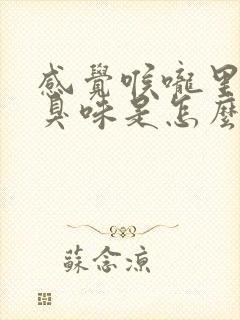 感覺喉嚨里
臭味是怎麼
蘇念涼